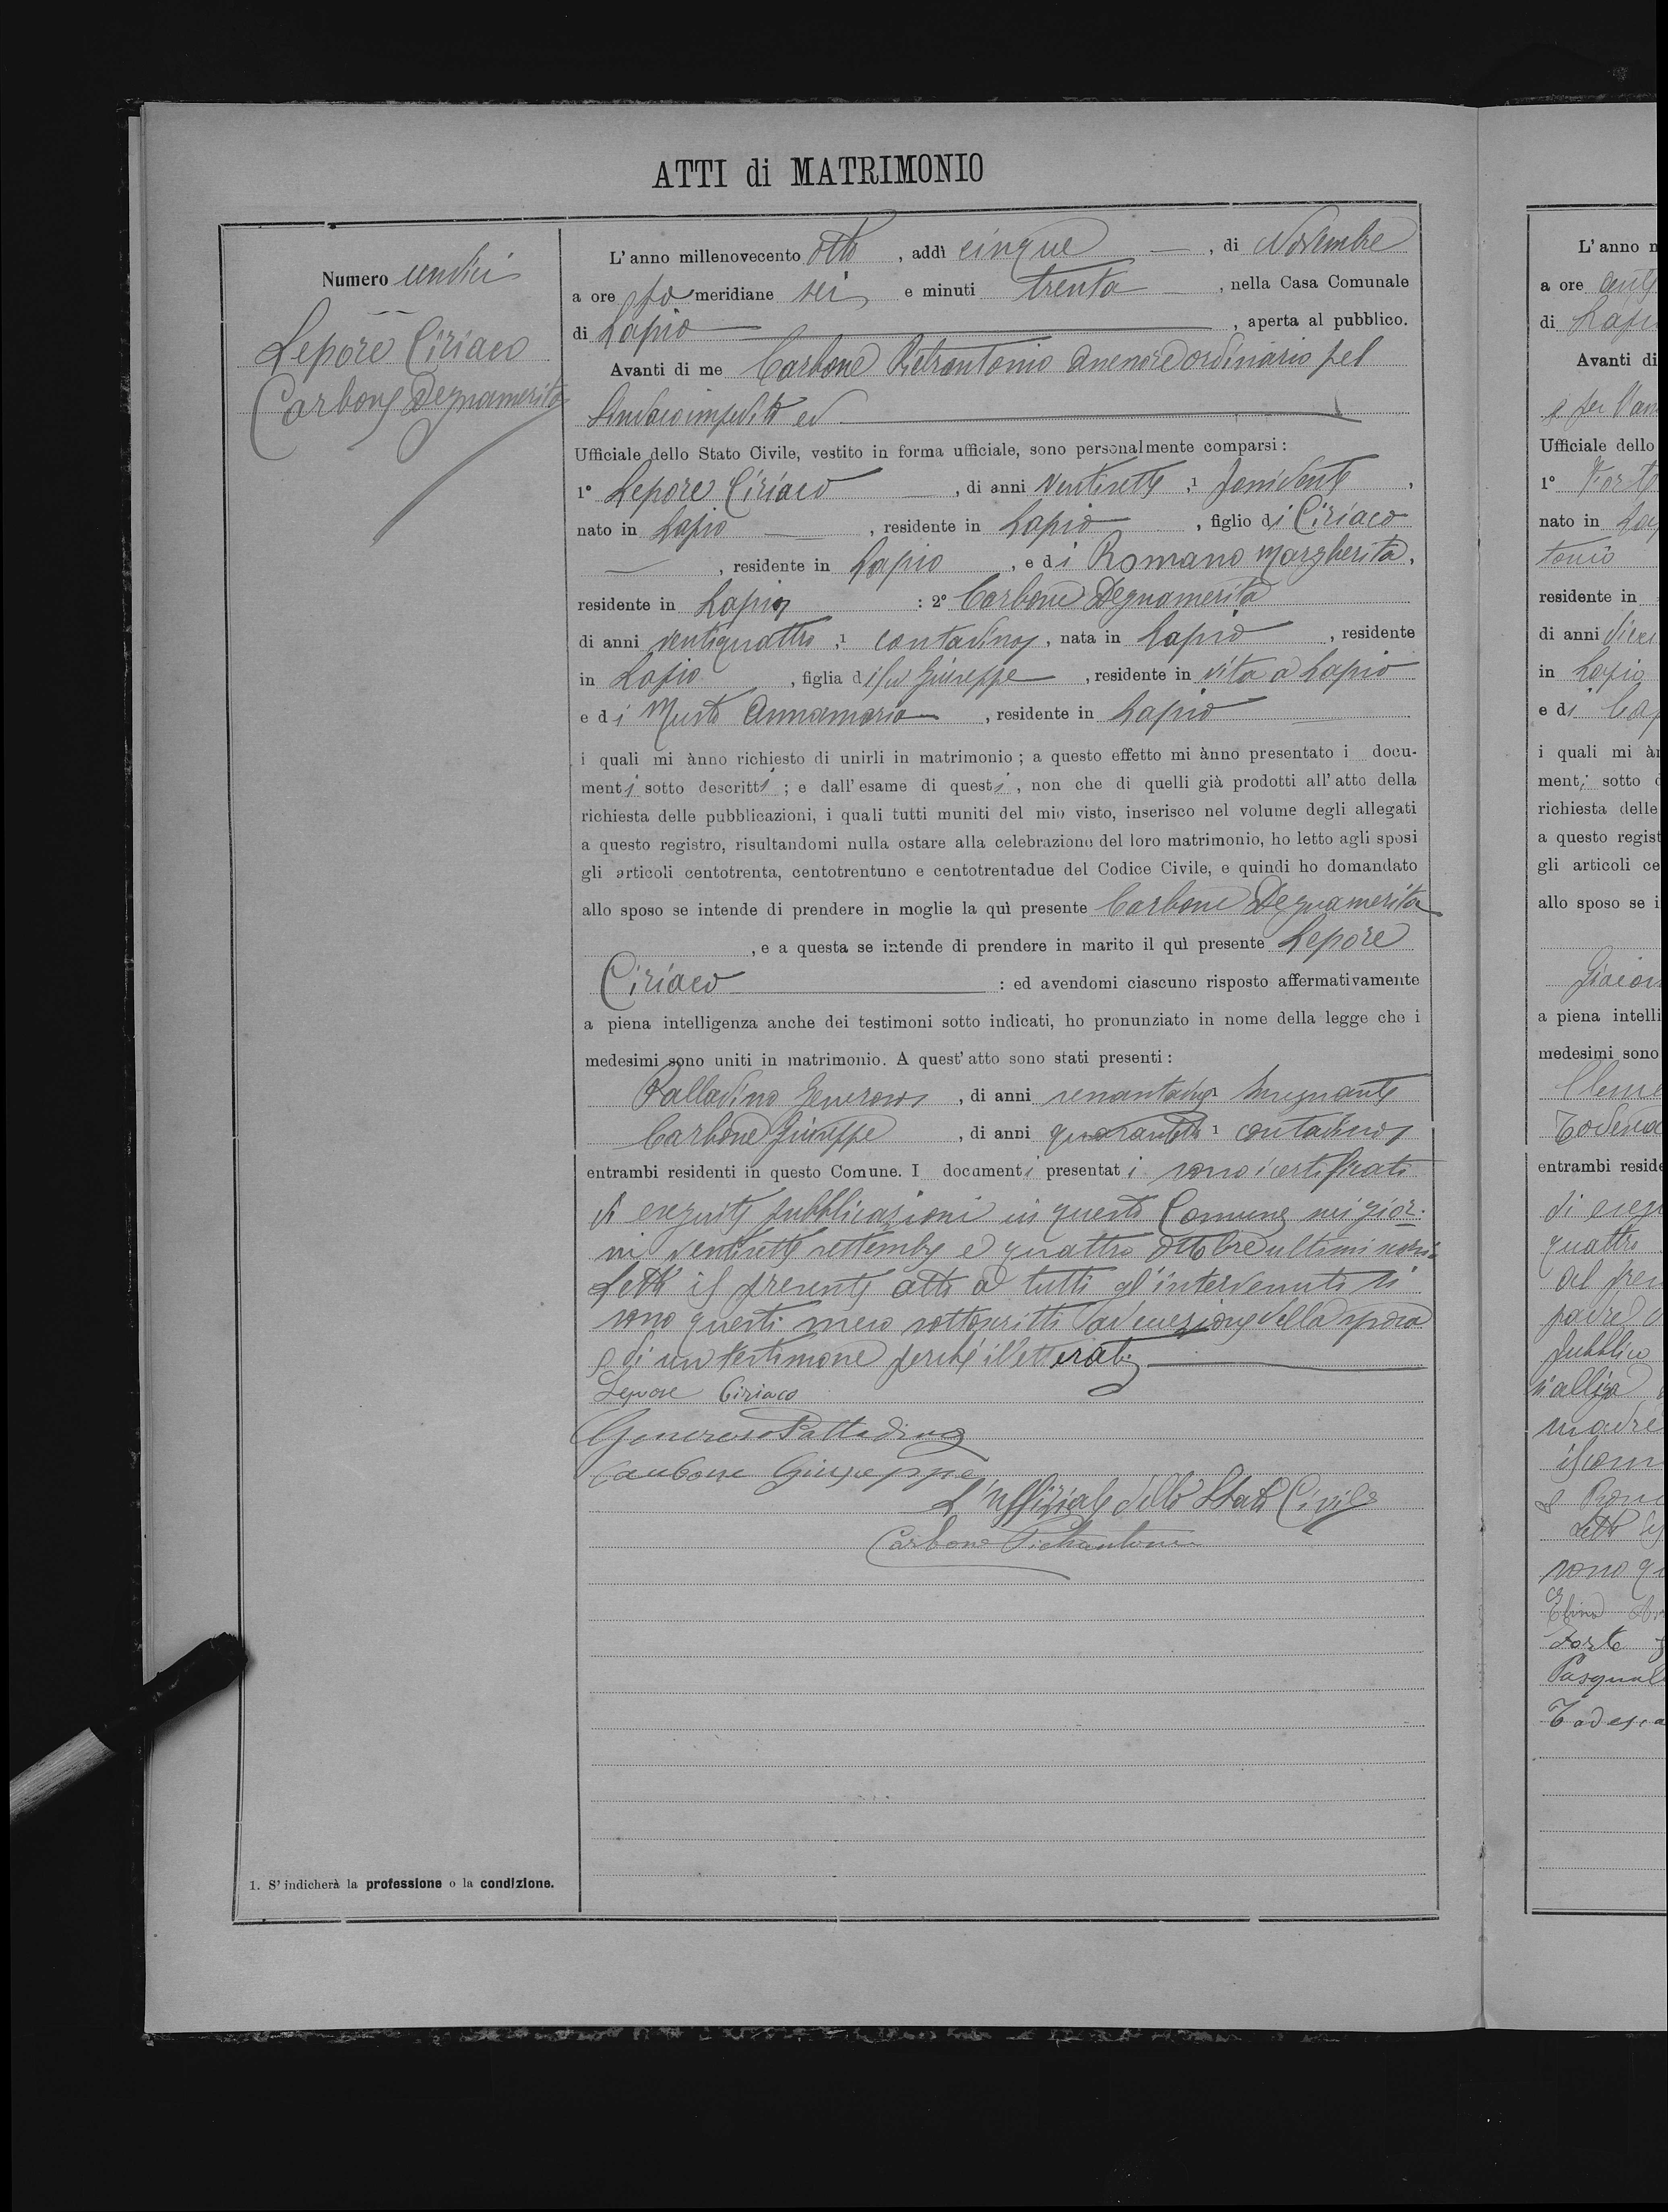 ATTI di MATRIMONIO
Numero undici
Lepore Ciriaco
Carbone Degnamerita
L'anno millenovecento otto, addì cinque, di Novembre
a ore po meridiane sei e minuti trenta, nella Casa Comunale
di Lapio, aperta al pubblico.
Avanti di me Carbone Pietrantonio Assessore ordinario pel
Sindaco impedito ed
Ufficiale dello Stato Civile, vestito in forma ufficiale, sono personalmente comparsi:
1° Lepore Ciriaco, di anni ventisette, 1 possidente,
nato in Lapio, residente in Lapio, figlio di Ciriaco
, residente in Lapio, e di Romano Margherita,
residente in Lapio : 2° Carbone Degnamerita
di anni ventiquattro, 1 contadina, nata in Lapio, residente
in Lapio, figlia di fu Giuseppe, residente in vita a Lapio
e di Musto Annamaria, residente in Lapio
i quali mi ànno richiesto di unirli in matrimonio; a questo effetto mi ànno presentato i docu-
menti sotto descritti; e dall'esame di questi, non che di quelli già prodotti all'atto della
richiesta delle pubblicazioni, i quali tutti muniti del mio visto, inserisco nel volume degli allegati
a questo registro, risultandomi nulla ostare alla celebrazione del loro matrimonio, ho letto agli sposi
gli articoli centotrenta, centotrentuno e centotrentadue del Codice Civile, e quindi ho domandato
allo sposo se intende di prendere in moglie la quì presente Carbone Degnamerita
, e a questa se intende di prendere in marito il quì presente Lepore
Ciriaco : ed avendomi ciascuno risposto affermativamente
a piena intelligenza anche dei testimoni sotto indicati, ho pronunziato in nome della legge che i
medesimi sono uniti in matrimonio. A quest'atto sono stati presenti:
Palladino Generoso, di anni Insegnante
Carbone Giuseppe, di anni 1 contadino
entrambi residenti in questo Comune. I documenti presentati sono i certificati
di eseguite pubblicazioni in questo Comune nei gior-
ni ventisette settembre e quattro ottobre ultimi
Letto il presente atto a tutti gl'intervenuti si
sono questi meco sottoscritti ad eccezione della sposa
e di un testimone perchè illetterati
Lepore Ciriaco
Generoso Palladino
Carbone Giuseppe
L'Uffiziale dello Stato Civile
Carbone Pietrantonio
1. S'indicherà la professione o la condizione.
L'anno
a ore
di Lapio
Avanti di
Ufficiale dello
1° Forte
nato in
tonio
residente in
di anni
in Lapio
e di
i quali mi
menti sotto
richiesta delle
a questo regist
gli articoli ce
allo sposo se i
a piena intelli
medesimi sono
entrambi reside
di eseg
quattro
pubblico
madre
Forte
Pasquale